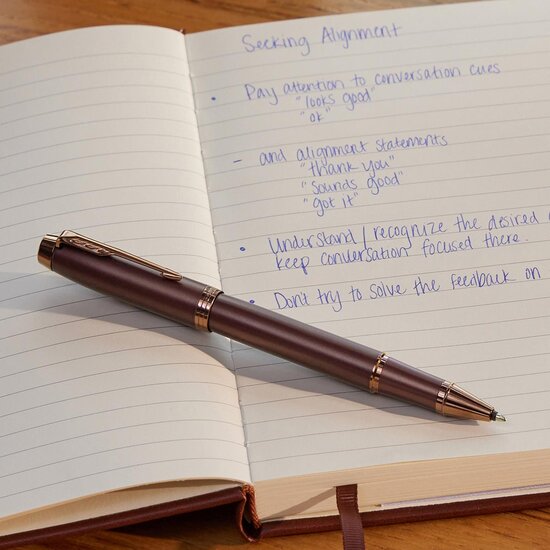 Seeking Alignment
• Pay attention to conversation cues
"looks good"
"ok"
– and alignment statements
"thank you"
"sounds good"
"got it"
• Understand / recognize the desired
keep conversation focused there.
• Don't try to solve the feedback on